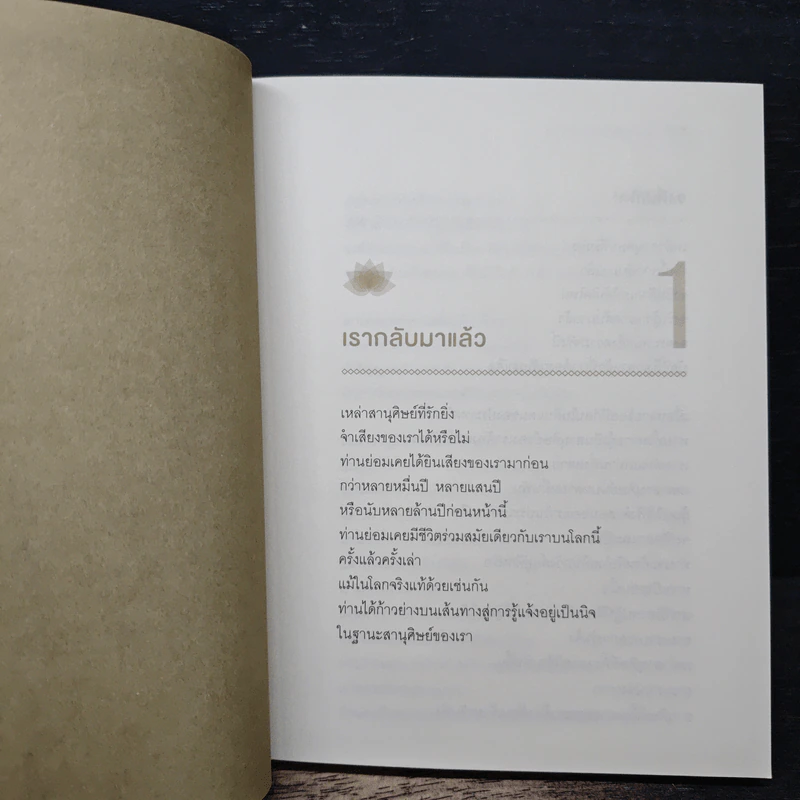 1
เรากลับมาแล้ว
เหล่าสานุศิษย์ที่รักยิ่ง
จำเสียงของเราได้หรือไม่
ท่านย่อมเคยได้ยินเสียงของเรามาก่อน
กว่าหลายหมื่นปี หลายแสนปี
หรือนับหลายล้านปีก่อนหน้านี้
ท่านย่อมเคยมีชีวิตร่วมสมัยเดียวกับเราบนโลกนี้
ครั้งแล้วครั้งเล่า
แม้ในโลกจริงแท้ด้วยเช่นกัน
ท่านได้ก้าวย่างบนเส้นทางสู่การรู้แจ้งอยู่เป็นนิจ
ในฐานะสานุศิษย์ของเรา